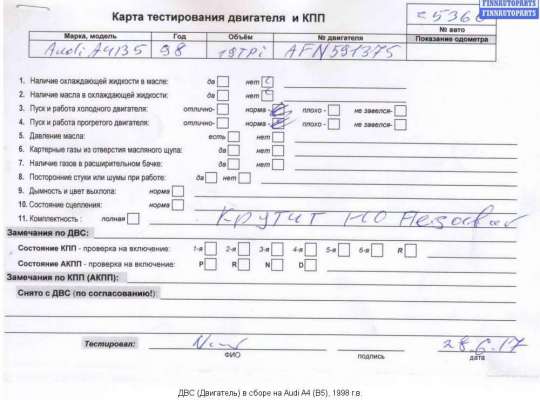 FINNAUTOPARTS
FINNAUTOPARTS
Карта тестирования двигателя и КПП
с5366
№ авто
Марка, модель Год Объём № двигателя Показание одометра
Audi A4 B5 98 1.9TDi AFN591375
1. Наличие охлаждающей жидкости в масле: да нет
2. Наличие масла в охлаждающей жидкости: да нет
3. Пуск и работа холодного двигателя: отлично- норма- плохо - не завелся-
4. Пуск и работа прогретого двигателя: отлично- норма- плохо - не завелся-
5. Давление масла: есть нет
6. Картерные газы из отверстия масляного щупа: да нет
7. Наличие газов в расширительном бачке: да нет
8. Посторонние стуки или шумы при работе: да нет
9. Дымность и цвет выхлопа: норма
10. Состояние сцепления: норма
11. Комплектность : полная
Крутит но
Замечания по ДВС:
Состояние КПП - проверка на включение: 1-я 2-я 3-я 4-я 5-я 6-я R
Состояние АКПП - проверка на включение: P R N D
Замечания по КПП (АКПП):
Снято с ДВС (по согласованию!):
Тестировал: 28.6.17
ФИО подпись дата
ДВС (Двигатель) в сборе на Audi A4 (B5), 1998 г.в.